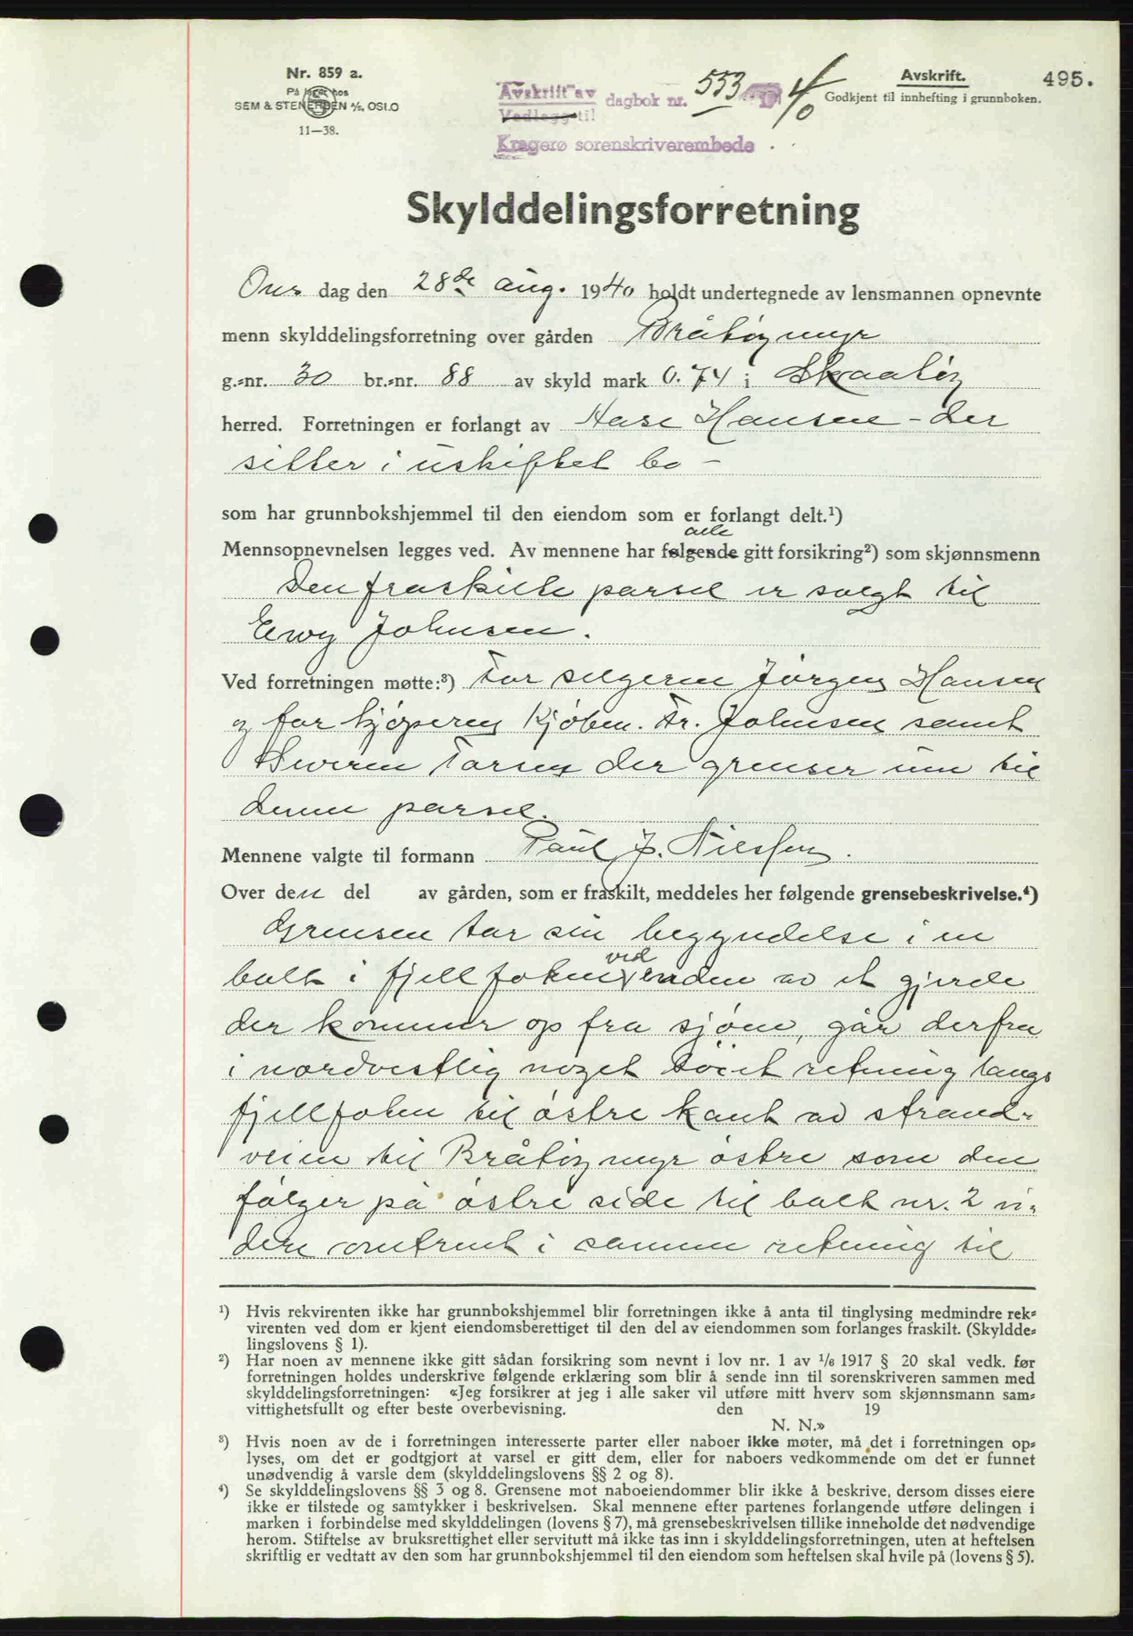 Nr. 859 a.
På lager hos
SEM & STENERSEN A/S, OSLO
11—38.
Avskrift av
Vedlegg til
dagbok nr. 553
40
Kragerø sorenskriverembede
Avskrift.
Godkjent til innhefting i grunnboken.
495.
Skylddelingsforretning
Ons dag den 28de aug. 1940 holdt undertegnede av lensmannen opnevnte
menn skylddelingsforretning over gården Bråtøymyr
g.=nr. 30 br.=nr. 88 av skyld mark 0.74 i Skaatøy
herred. Forretningen er forlangt av Hansen - der
sitter i uskiftet bo -
som har grunnbokshjemmel til den eiendom som er forlangt delt.¹)
alle
Mennsopnevnelsen legges ved. Av mennene har følgende gitt forsikring²) som skjønnsmenn
Den fraskilte parsel er solgt til
Johnsen.
Ved forretningen møtte:³) For selgeren Jörgen Hansen
og for kjöperen Kjöbm. Fr. Johnsen samt
der grenser inn til
denne parsel.
Mennene valgte til formann Paul J. Nilssen.
Over den del av gården, som er fraskilt, meddeles her følgende grensebeskrivelse.⁴)
Grensen tar sin begyndelse i en
ved
bolt i fjell foten enden av et gjerde
der kommer op fra sjöen, går derfra
i nordvestlig noget böiet retning langs
fjellfoten til östre kant av strand-
veien til Bråtöymyr östre som den
fölger på östre side til bolt nr. 2 vi-
dere omtrent i samme retning til
¹) Hvis rekvirenten ikke har grunnbokshjemmel blir forretningen ikke å anta til tinglysing medmindre rek=
virenten ved dom er kjent eiendomsberettiget til den del av eiendommen som forlanges fraskilt. (Skyldde=
lingslovens § 1).
²) Har noen av mennene ikke gitt sådan forsikring som nevnt i lov nr. 1 av 1/6 1917 § 20 skal vedk. før
forretningen holdes underskrive følgende erklæring som blir å sende inn til sorenskriveren sammen med
skylddelingsforretningen: «Jeg forsikrer at jeg i alle saker vil utføre mitt hverv som skjønnsmann sam=
vittighetsfullt og efter beste overbevisning. den 19
N. N.»
³) Hvis noen av de i forretningen interesserte parter eller naboer ikke møter, må det i forretningen op=
lyses, om det er godtgjort at varsel er gitt dem, eller for naboers vedkommende om det er funnet
unødvendig å varsle dem (skylddelingslovens §§ 2 og 8).
⁴) Se skylddelingslovens §§ 3 og 8. Grensene mot naboeiendommer blir ikke å beskrive, dersom disses eiere
ikke er tilstede og samtykker i beskrivelsen. Skal mennene efter partenes forlangende utføre delingen i
marken i forbindelse med skylddelingen (lovens § 7), må grensebeskrivelsen tillike inneholde det nødvendige
herom. Stiftelse av bruksrettighet eller servitutt må ikke tas inn i skylddelingsforretningen, uten at heftelsen
skriftlig er vedtatt av den som har grunnbokshjemmel til den eiendom som heftelsen skal hvile på (lovens § 5).